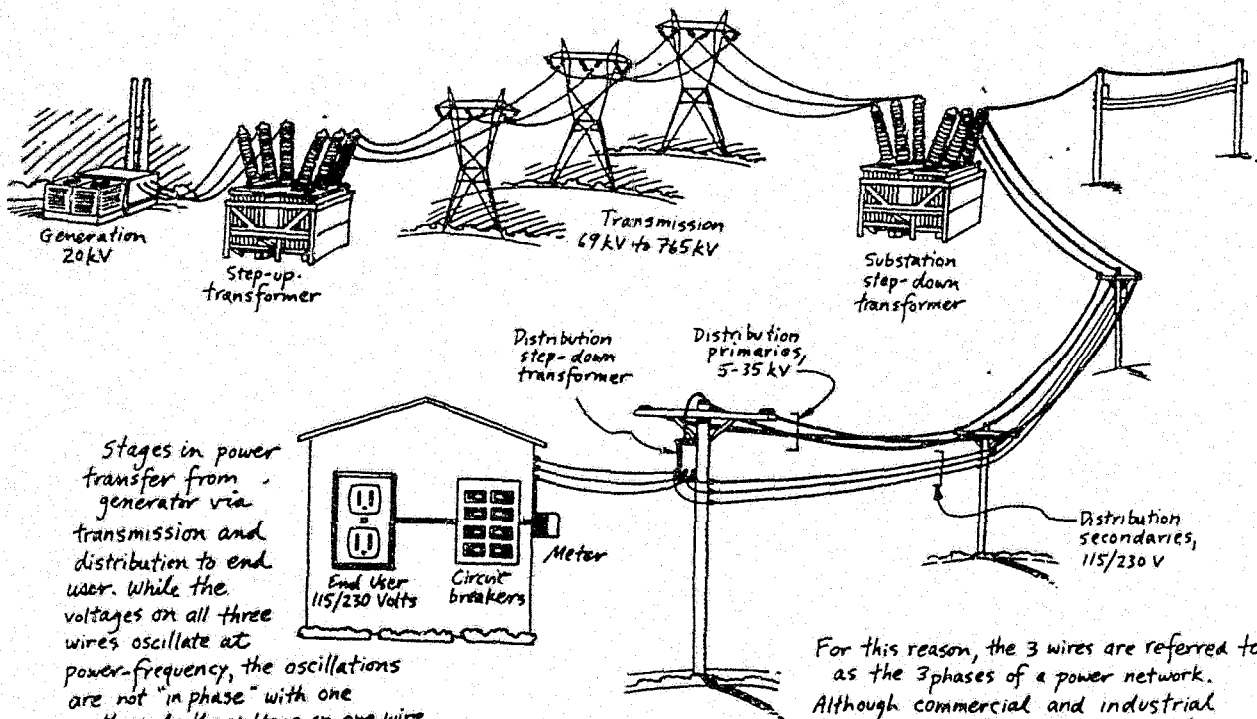 Generation
20kV
Step-up
transformer
Transmission
69kV to 765kV
Substation
step-down
transformer
Distribution
step-down
transformer
Distribution
primaries,
5-35 kV
Distribution
secondaries,
115/230 V
Meter
Circuit
breakers
End User
115/230 Volts
Stages in power
transfer from
generator via
transmission and
distribution to end
user. While the
voltages on all three
wires oscillate at
power-frequency, the oscillations
are not "in phase" with one
on one wire
For this reason, the 3 wires are referred to
as the 3 phases of a power network.
Although commercial and industrial